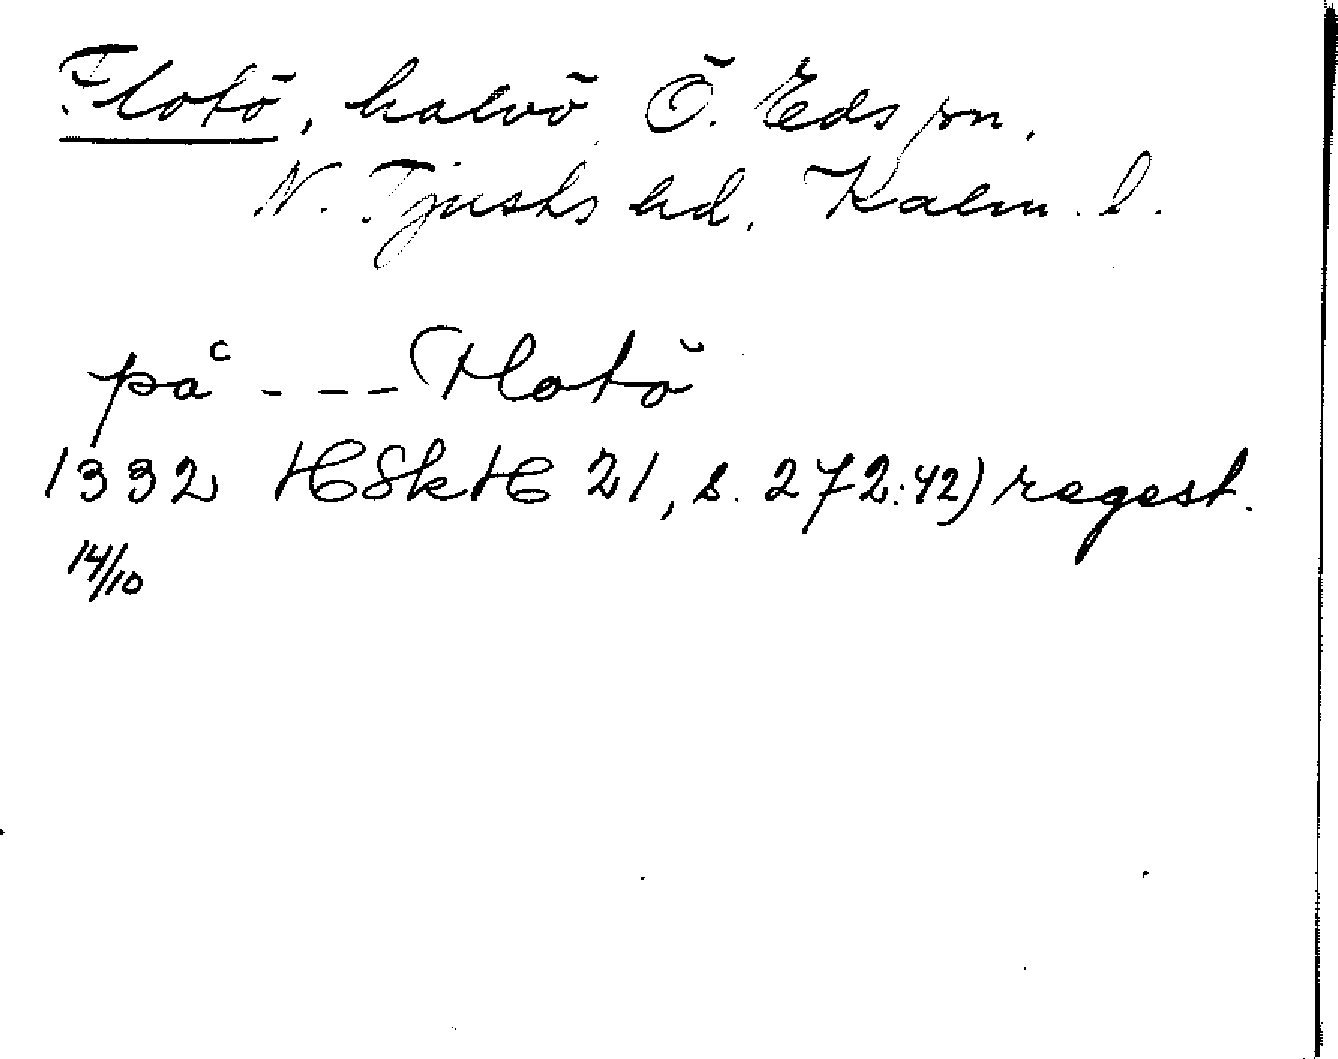 Flotö, halvö, Ö. Eds sn,
N. Tjusts hd, Kalm. l.
på --- Flotö
1332 HSkH 21, s. 272:42) regest.
14/10